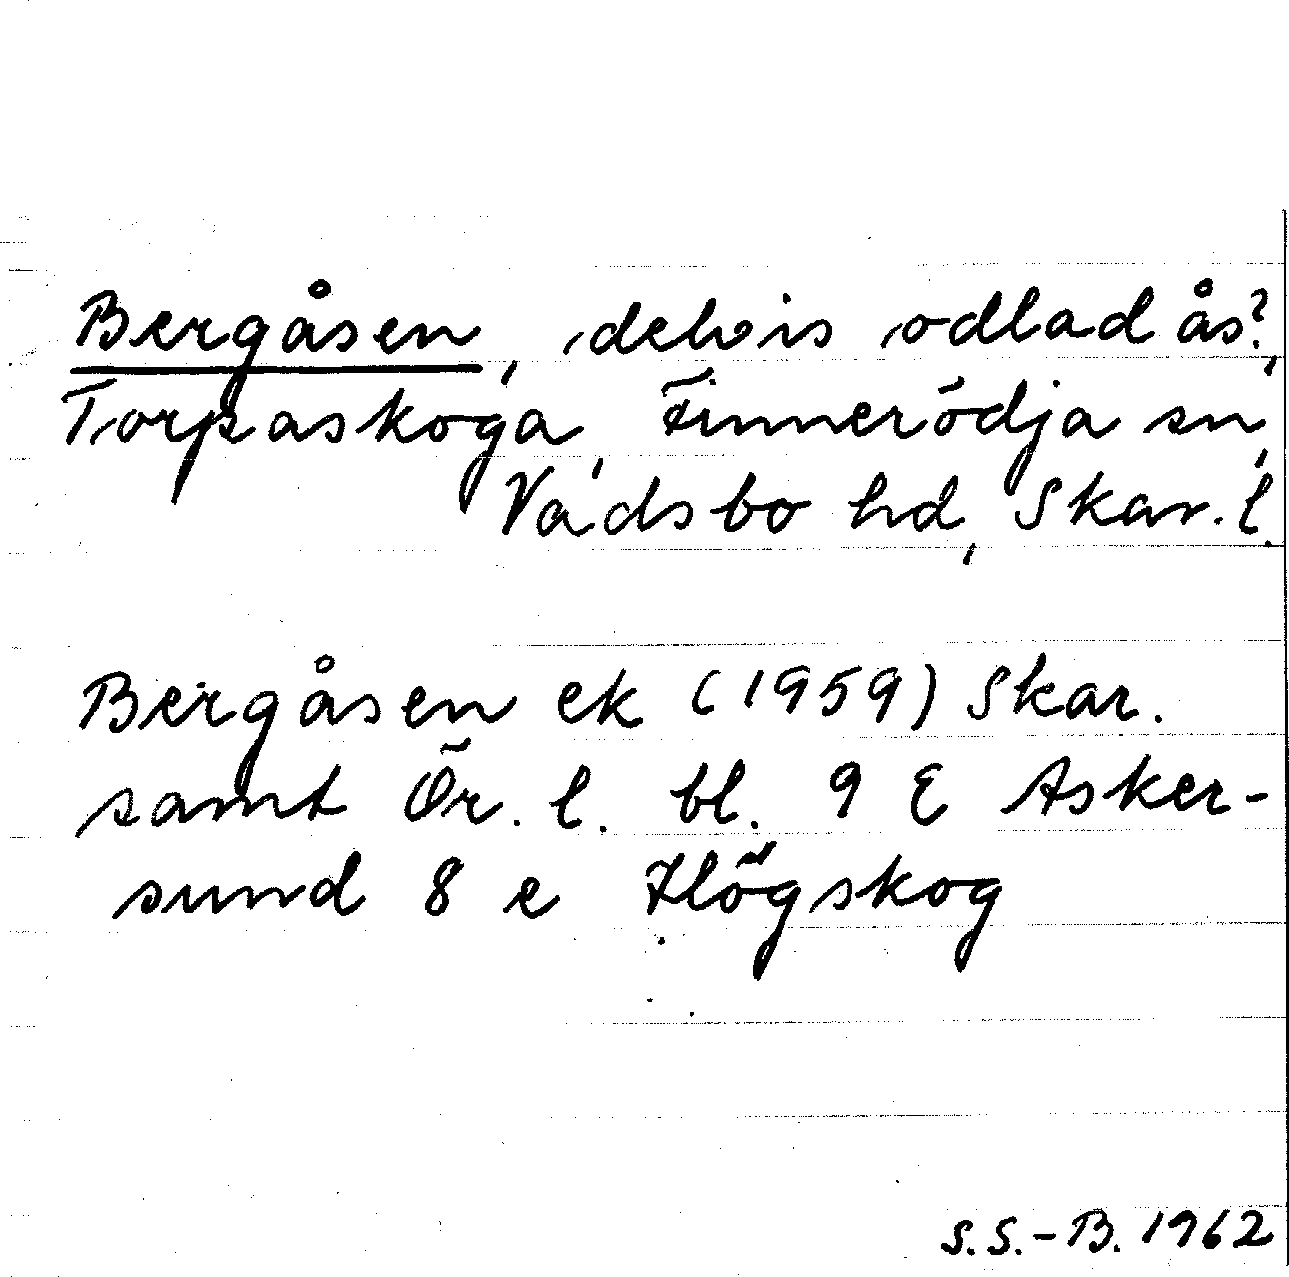 Bergåsen, delvis odlad ås?,
Torpaskoga, Finnerödja sn,
Vadsbo hd, Skar. l.
Bergåsen ek (1959) Skar.
samt Ör. l. bl. 9 E Asker-
sund 8 e Högskog
S.S.-B. 1962